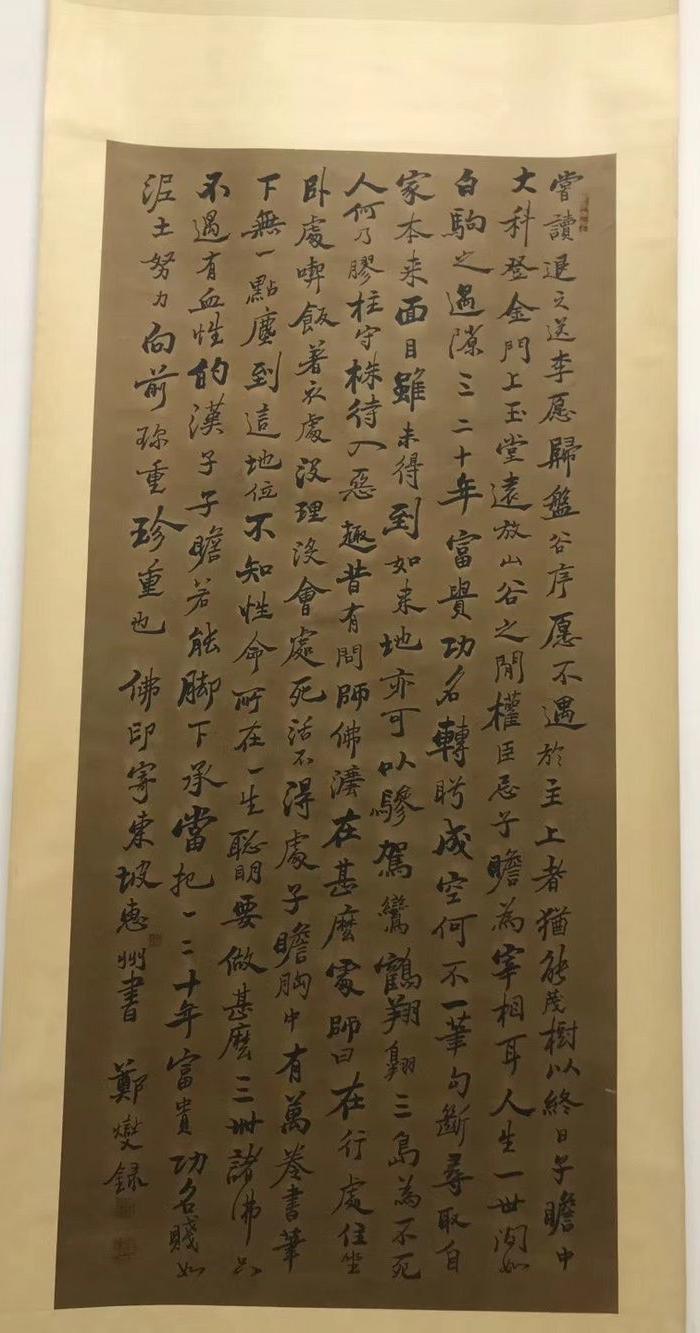 嘗讀退之送李愿歸盤谷序愿不遇於主上者猶能茂樹以終日子瞻中
大科登金門上玉堂遠放山谷之間權臣忌子瞻為宰相耳人生一世間如
白駒之過隙三二十年富貴功名轉盼成空何不一筆勾斷尋取自
家本来面目雖未得到如来地亦可以驂駕鸞鶴翔翱三島為不死
人何乃膠柱守株待入惡趣昔有問師佛法在甚麼處師曰在行處住坐
卧處喫飯著衣處没理没會處死活不得處子瞻胸中有萬卷書筆
下無一點塵到這地位不知性命所在一生聪明要做甚麼三世諸佛只
不過有血性的漢子子瞻若能脚下承當把一二十年富貴功名賤如
泥土努力向前珍重珍重也 佛印寄東坡惠州書 鄭燮録